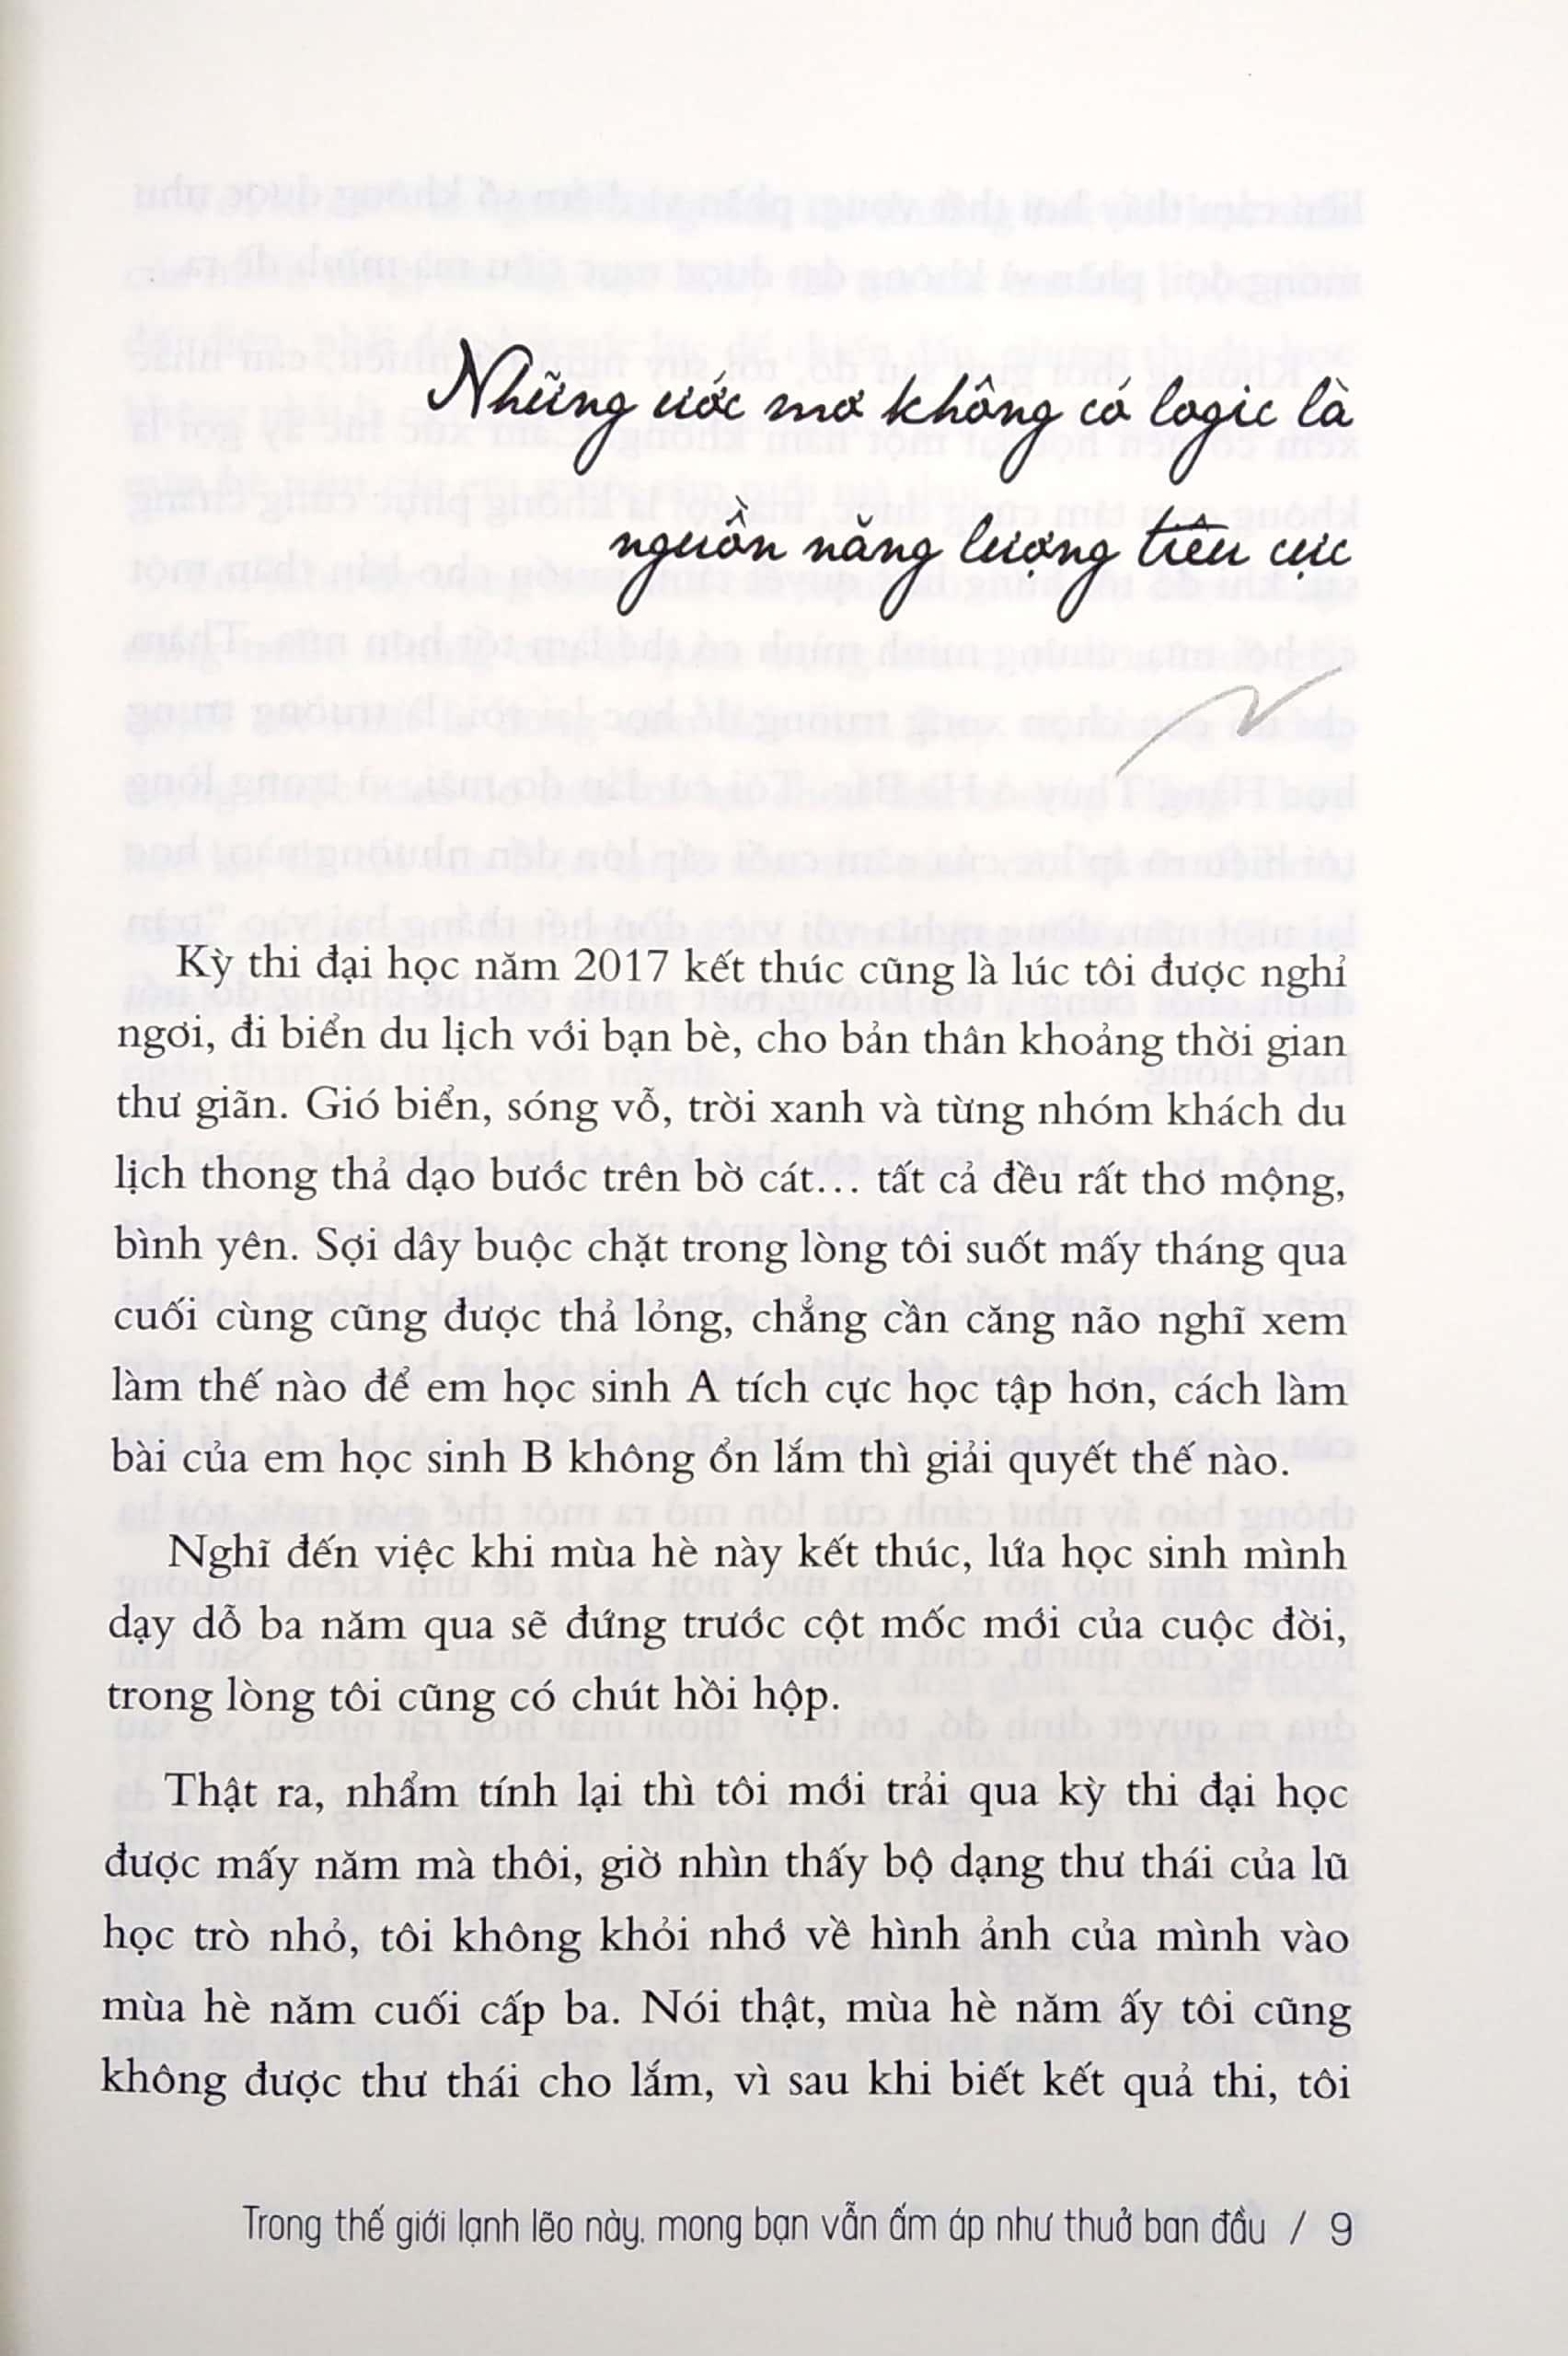 Những ước mơ không có logic là
nguồn năng lượng tiêu cực
Kỳ thi đại học năm 2017 kết thúc cũng là lúc tôi được nghỉ
ngơi, đi biển du lịch với bạn bè, cho bản thân khoảng thời gian
thư giãn. Gió biển, sóng vỗ, trời xanh và từng nhóm khách du
lịch thong thả dạo bước trên bờ cát... tất cả đều rất thơ mộng,
bình yên. Sợi dây buộc chặt trong lòng tôi suốt mấy tháng qua
cuối cùng cũng được thả lỏng, chẳng cần căng não nghĩ xem
làm thế nào để em học sinh A tích cực học tập hơn, cách làm
bài của em học sinh B không ổn lắm thì giải quyết thế nào.
Nghĩ đến việc khi mùa hè này kết thúc, lứa học sinh mình
dạy dỗ ba năm qua sẽ đứng trước cột mốc mới của cuộc đời,
trong lòng tôi cũng có chút hồi hộp.
Thật ra, nhẩm tính lại thì tôi mới trải qua kỳ thi đại học
được mấy năm mà thôi, giờ nhìn thấy bộ dạng thư thái của lũ
học trò nhỏ, tôi không khỏi nhớ về hình ảnh của mình vào
mùa hè năm cuối cấp ba. Nói thật, mùa hè năm ấy tôi cũng
không được thư thái cho lắm, vì sau khi biết kết quả thi, tôi
Trong thế giới lạnh lẽo này, mong bạn vẫn ấm áp như thuở ban đầu / 9